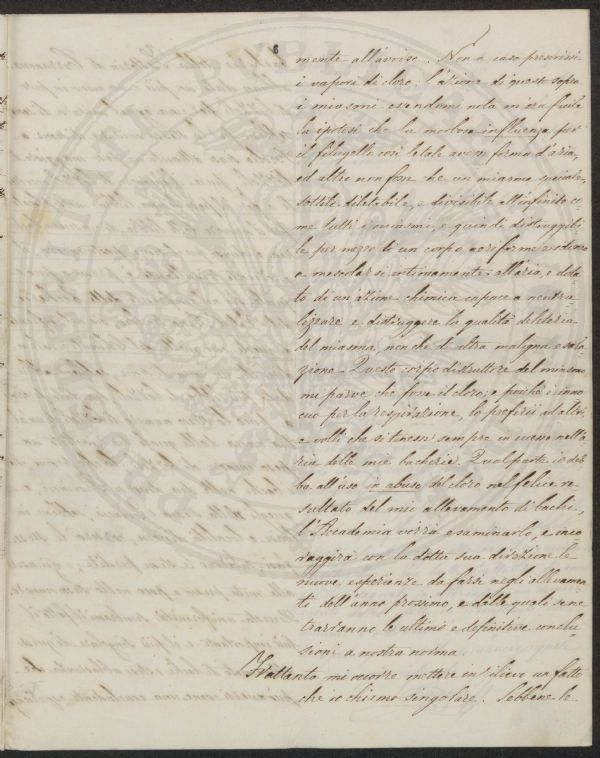 6
mente all'avviso. Non a caso prescrissi
i vapori di cloro. L'azione di questo sopra
i miasmi essendomi nota m'era facile
la ipotesi che la morbosa influenza per
il filugello così letale avesse forma d'aria,
ed altro non fosse che un miasma speciale,
sottile, dilatabile, e divisibile all'infinito co
me tutti i miasmi, e quindi distruggibi
le per mezzo di un corpo aeriforme
a mescolarsi intimamente all'aria, e dota
to di un'azione chimica capace a neutra
lizzare e distruggere la qualità deleteria
del miasma, non che di altra maligna esala
zione. Questo corpo distruttore del miasma
mi parve che fosse il cloro; e poichè innoc
cuo per la respirazione, lo preferii ad altri,
e volli che si tenesse sempre in nell'a
ria delle mie bacherie. Qual parte io deb
ba all'uso in abuso del cloro nel felice re
sultato del mio allevamento di bachi,
l'Accademia vorrà esaminarlo, e inco
raggirà con la dotta sua direzione le
nuove esperienze da farsi negli allevamen
ti dell'anno prossimo, e dalle quali se ne
trarranno le ultime e definitive conclu
sioni a nostra norma.
Frattanto mi occorre mettere in rilievo un fatto
che io chiamo singolare. Sebbene le